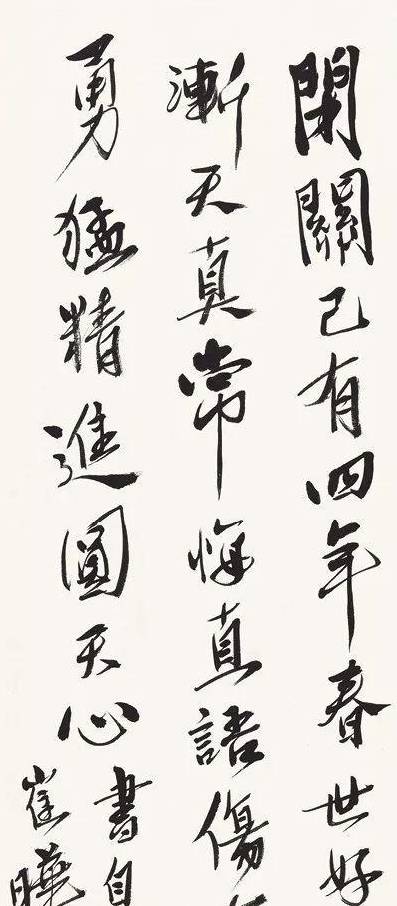 閉關已有四年春世好
漸天真常悔直語傷
勇猛精進圓天心
書自
崔曉